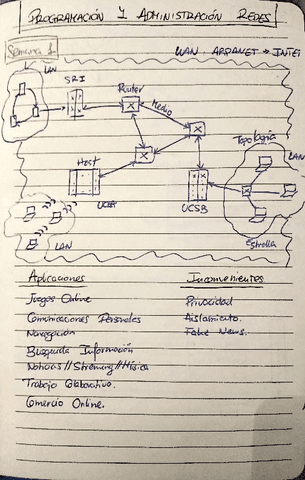 PROGRAMACIÓN Y ADMINISTRACIÓN REDES
Semana 1
WAN: ARPANET → INTE
LAN
SRI
Router
Medio
Topología
LAN
Host
UCLA
UCSB
Estrella
LAN
Aplicaciones
Juegos Online
Comunicaciones Personales
Navegación
Búsqueda Información
Noticias//Streming//Música
Trabajo Colaborativo.
Comercio Online.
Inconvenientes
Privacidad
Aislamiento.
Fake News.